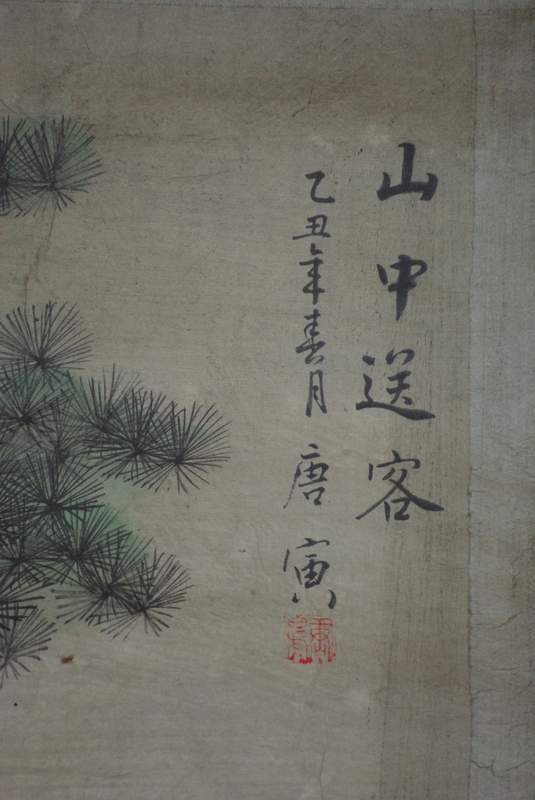 山中送客
乙丑年春月 唐寅